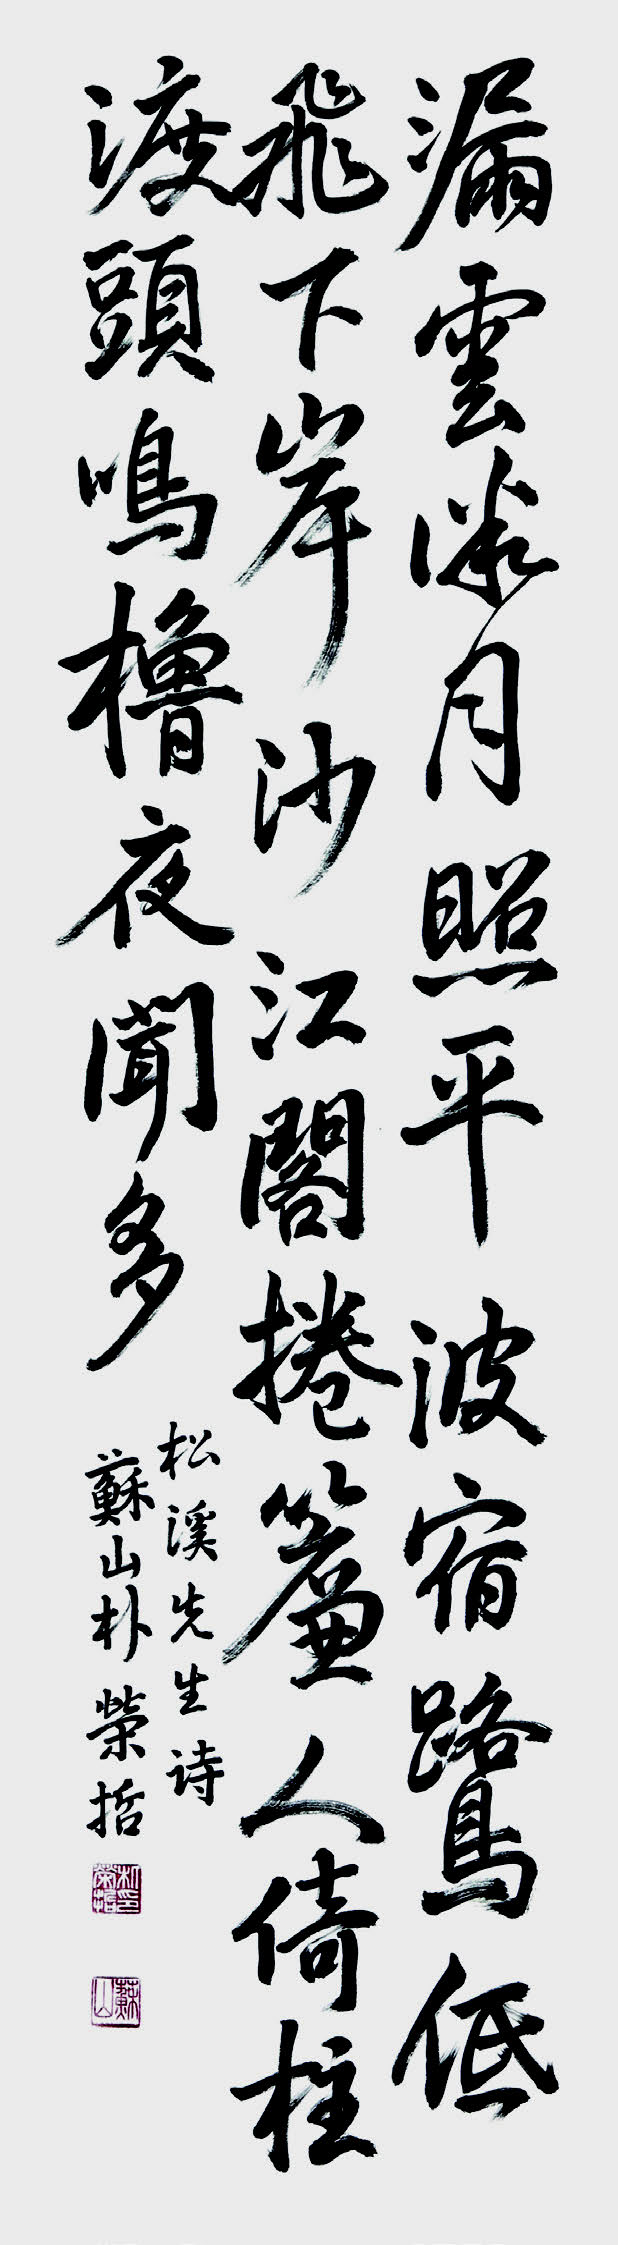 漏雲微月照平波宿鷺低
飛下岸沙江閣捲簾人倚柱
渡頭鳴櫓夜聞多
松溪先生詩
蘇山朴榮哲
朴榮哲印
蘇山